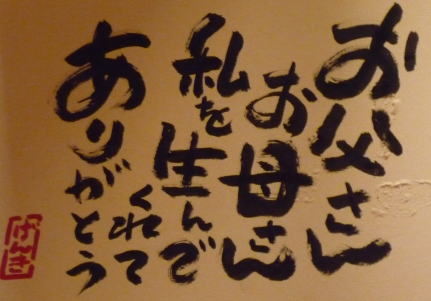 お父さん
お母さん
私を
生んで
くれて
ありがとう